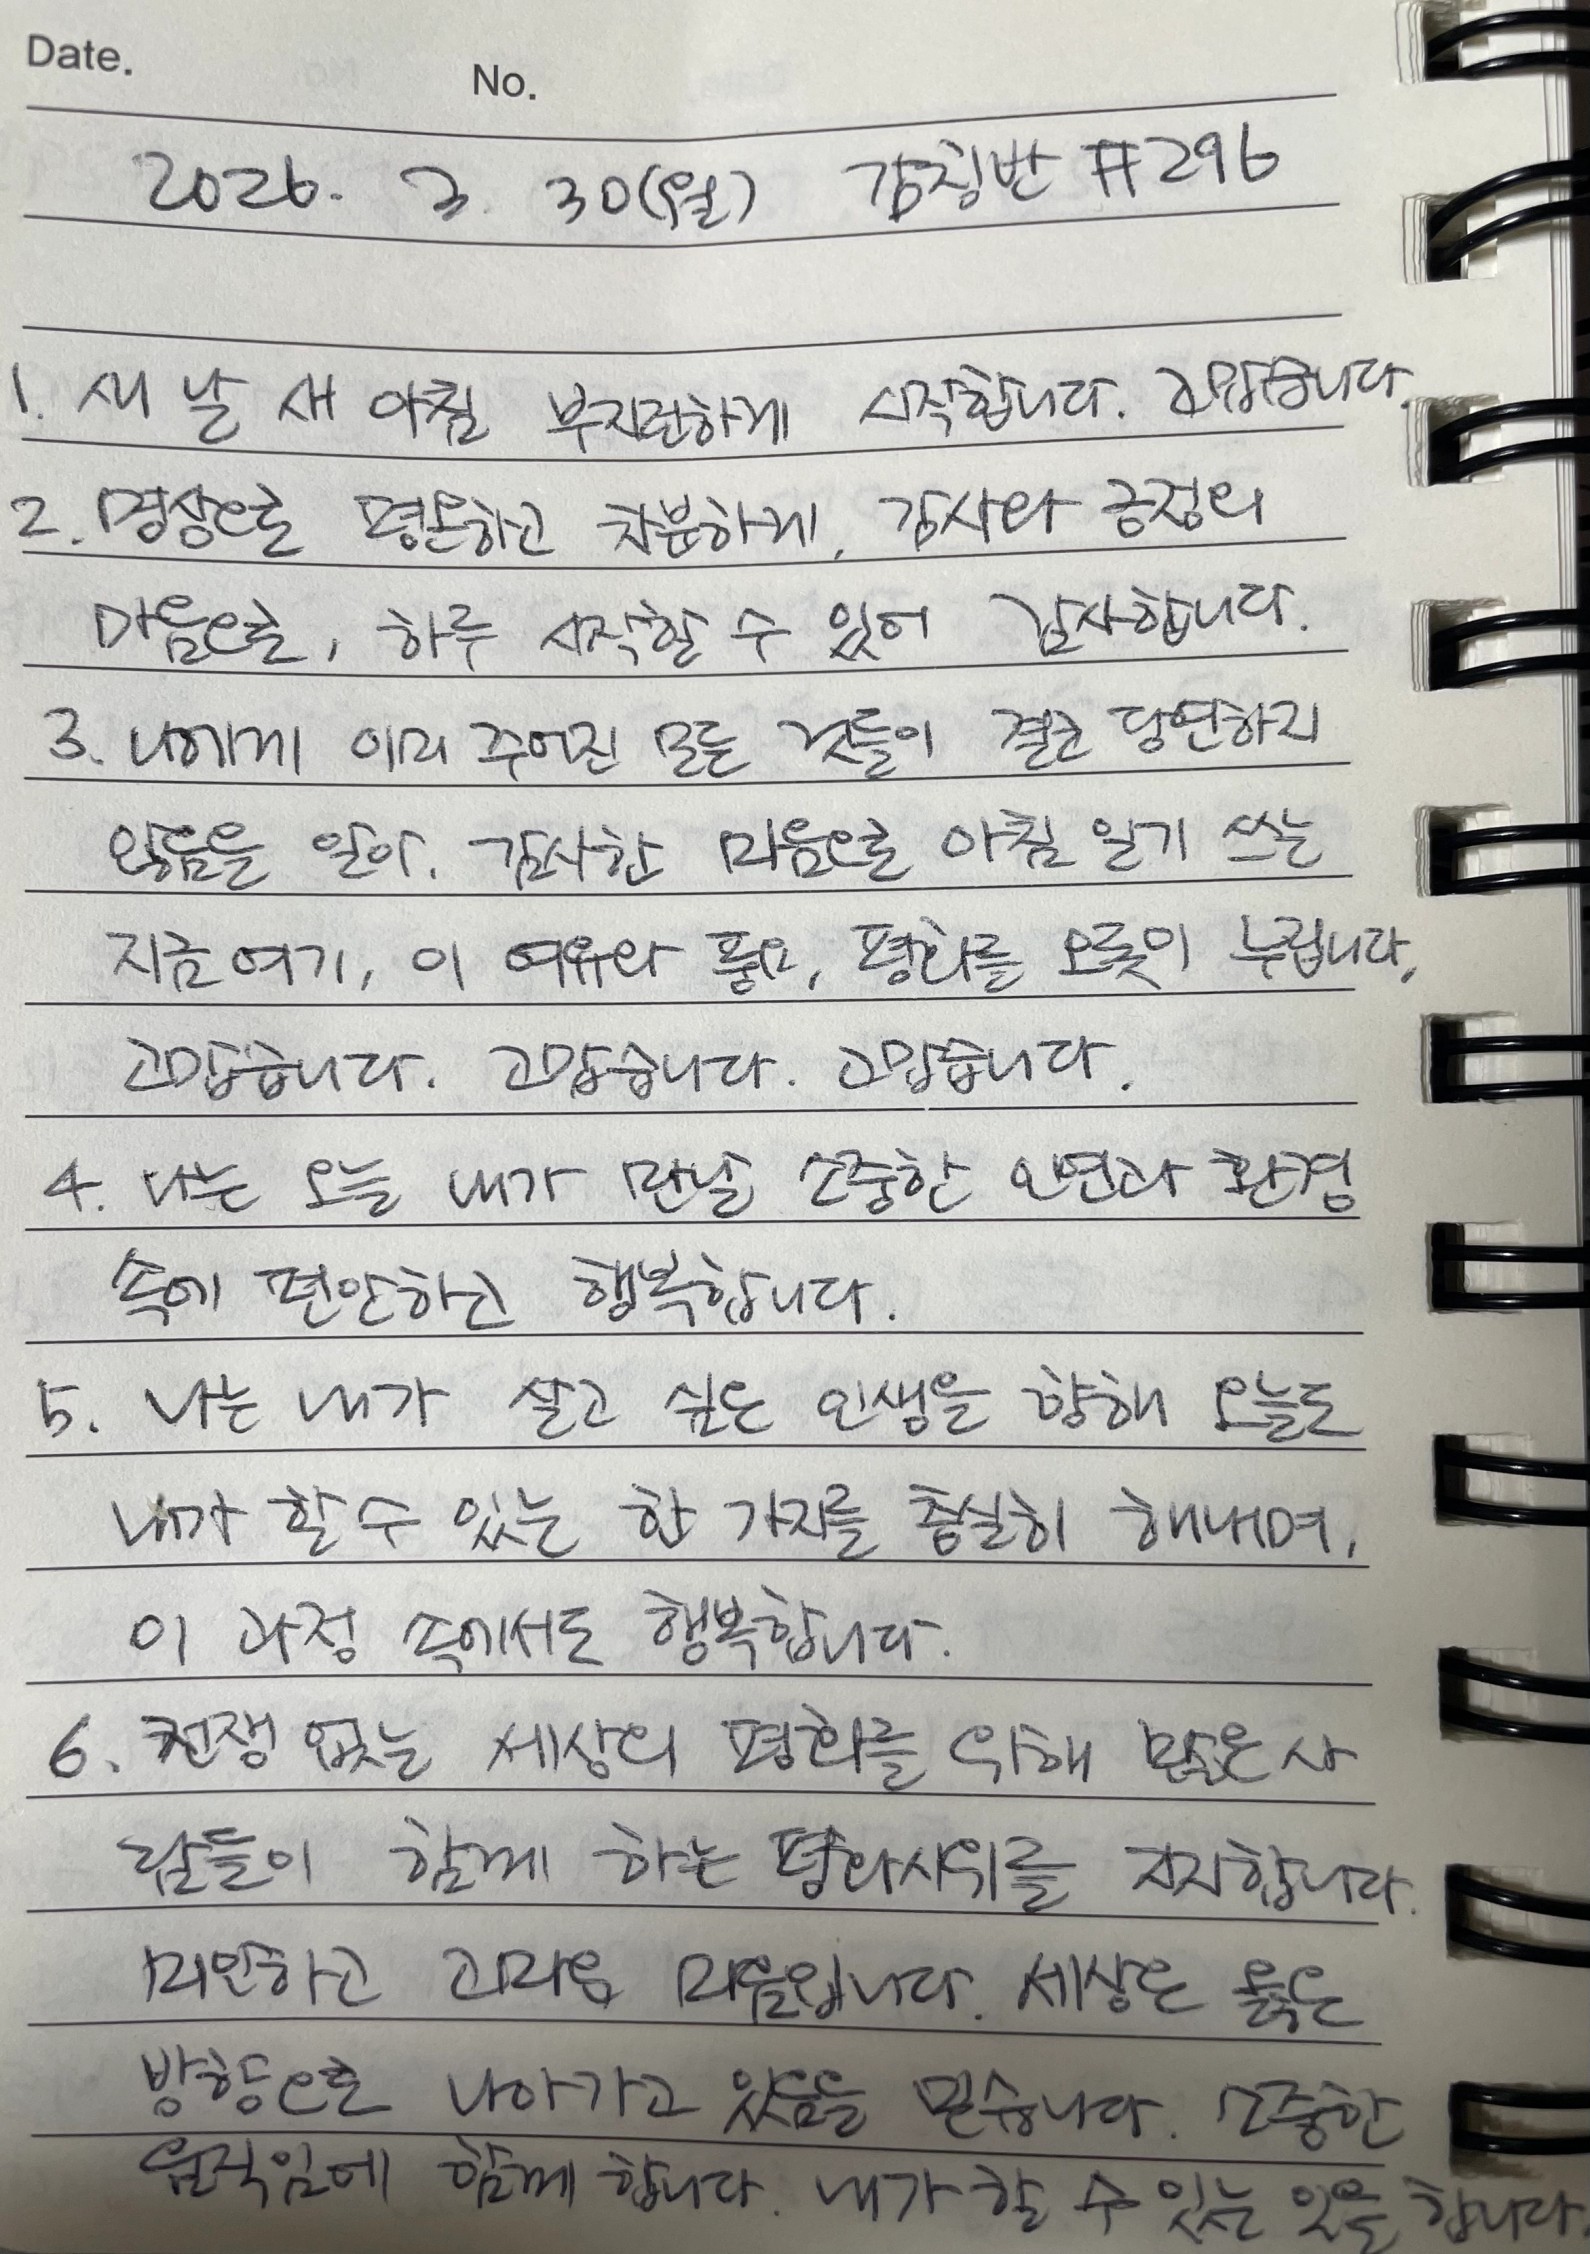 Date.
No.
2026. 3. 30(월) 감칭반 #296
1. 새 날 새 아침 부지런하게 시작합니다. 고맙습니다.
2. 명상으로 평온하고 차분하게, 감사와 긍정의
마음으로, 하루 시작할 수 있어 감사합니다.
3. 나에게 이미 주어진 모든 것들이 결코 당연하지
않음을 알아. 감사한 마음으로 아침 일기 쓰는
지금 여기, 이 여유와 풍요, 평화를 오롯이 누립니다.
고맙습니다. 고맙습니다. 고맙습니다.
4. 나는 오늘 내가 만날 소중한 인연과 환경
속에 편안하고 행복합니다.
5. 나는 내가 살고 싶은 인생을 향해 오늘도
내가 할 수 있는 한 가지를 충실히 해내며,
이 과정 속에서도 행복합니다.
6. 전쟁 없는 세상의 평화를 위해 많은 사
람들이 함께 하는 평화시위를 지지합니다.
미안하고 고마운 마음입니다. 세상은 옳은
방향으로 나아가고 있음을 믿습니다. 소중한
움직임에 함께 합니다. 내가 할 수 있는 일을 합니다.